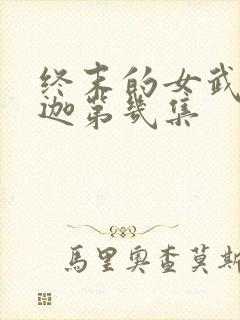 终末的女武
迦第几集
馬里奥查莫斯